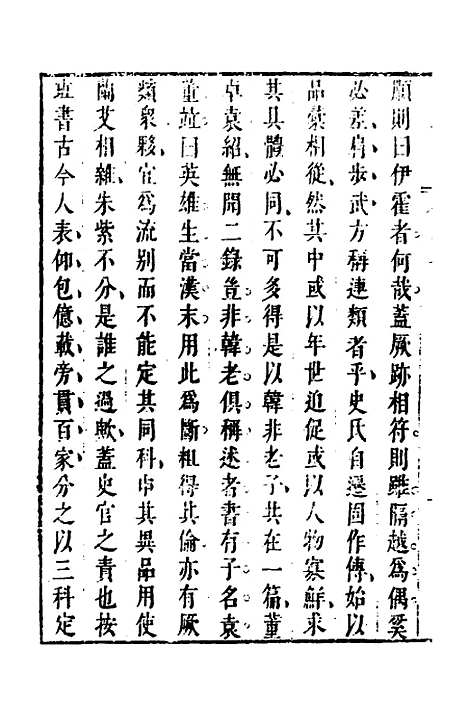 顏則曰伊霍者何哉蓋厥跡相符則雖隔越爲偶奚
必差肩步武方稱連類者乎史氏自遷固作傳始以
品彙相從然其中或以年世迫促或以人物寡鮮求
其具體必同不可多得是以韓非老子共在一篇董
卓袁紹無聞二錄豈非韓老俱稱述者書有子名袁
董並曰英雄生當漢末用此爲斷粗得其倫亦有厥
類衆夥宜爲流别而不能定其同科申其異品用使
蘭艾相雜朱紫不分是誰之過歟蓋史官之責也按
班書古今人表仰包億載旁貫百家分之以三科定